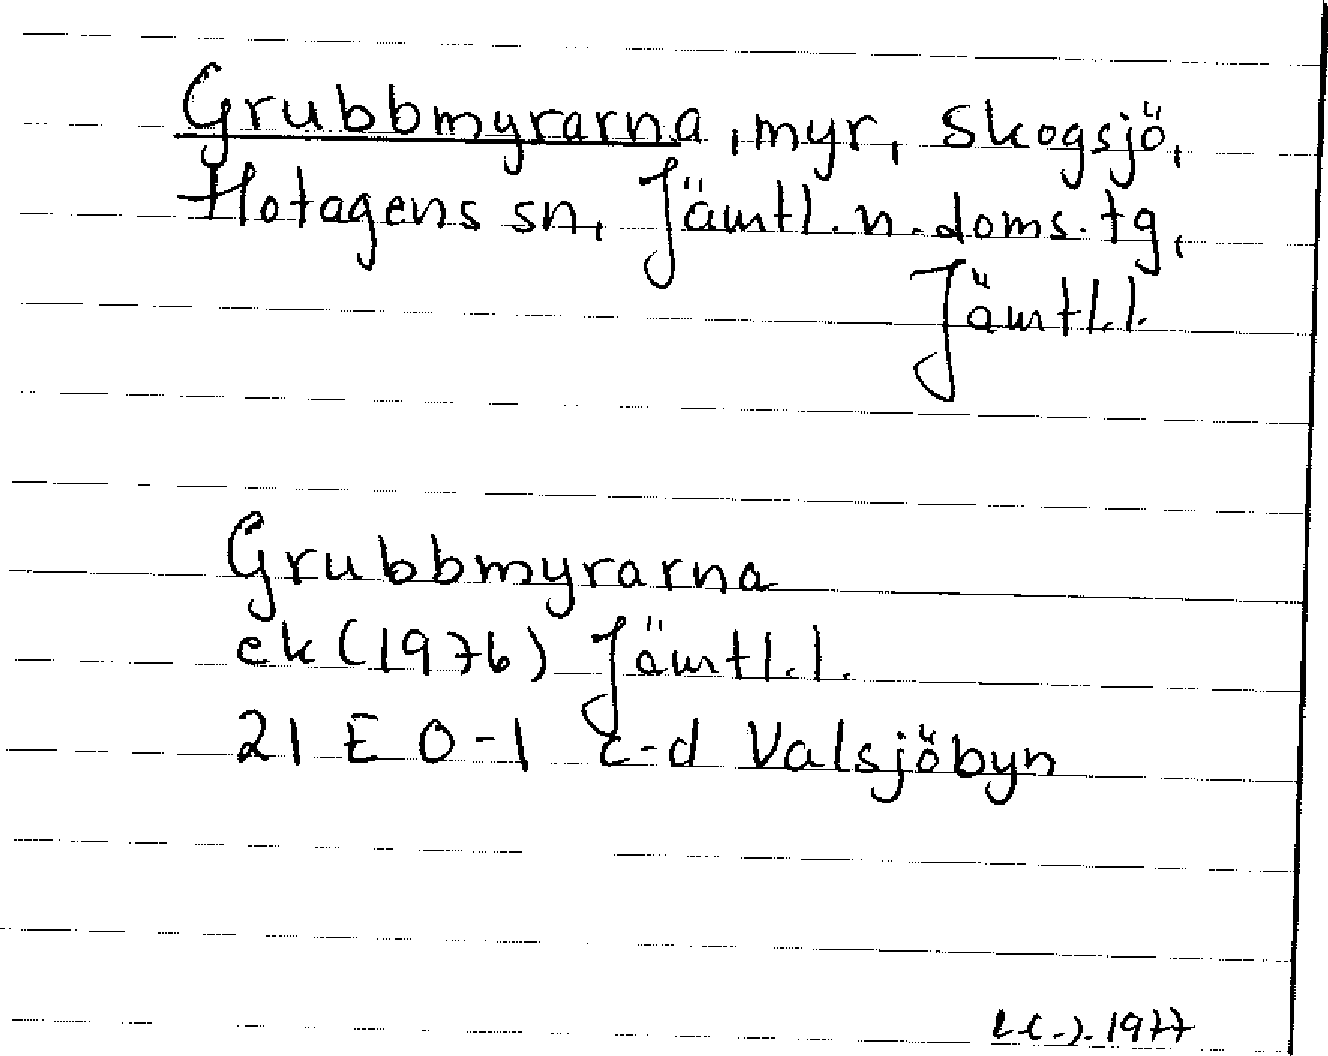 Grubbmyrarna, myr, Skogsjö,
Hotagens sn, Jämtl. n. doms. tg,
Jämtl.l.
Grubbmyrarna
ek (1976) Jämtl.l.
21 E 0-1 c-d Valsjöbyn
1977